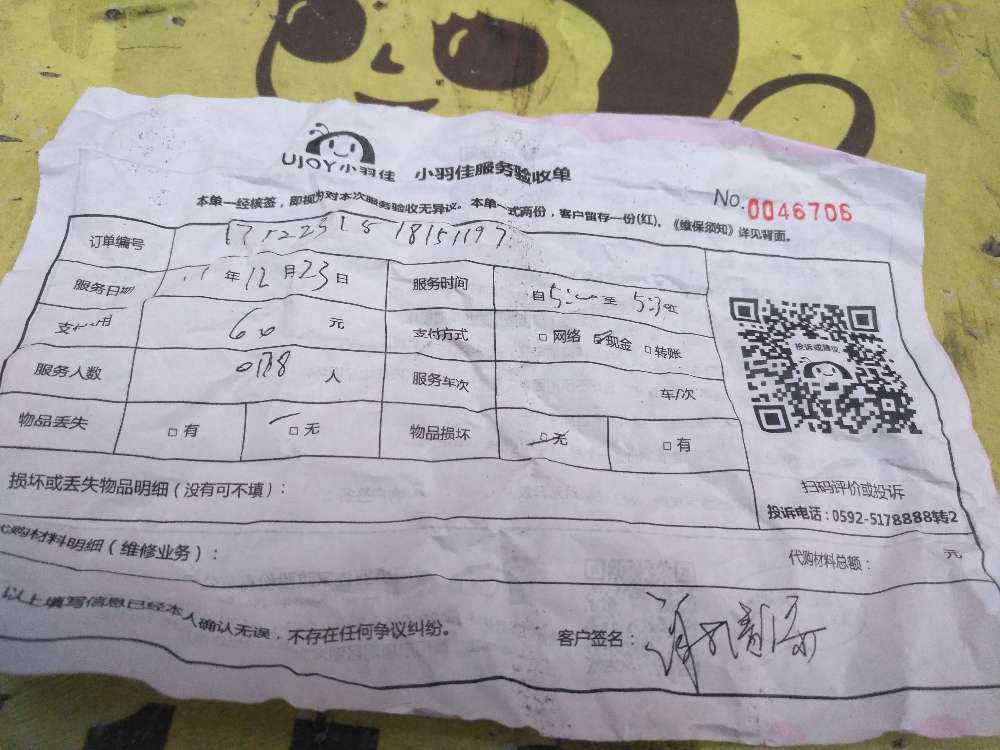 UJOY小羽佳 小羽佳服务验收单
No.0046706
本单一经核签，即视为对本次服务验收无异议。本单一式两份，客户留存一份(红)，《维保须知》详见背面。
订单编号
服务日期 年12月23日 服务时间 自5: 至5:30
支付费用 60元 支付方式 □网络 ☑现金 □转账
服务人数 人 服务车次 车/次
物品丢失 □有 □无 物品损坏 □无 □有
投诉或建议
扫码评价或投诉
投诉电话：0592-5178888转2
损坏或丢失物品明细（没有可不填）：
代购材料明细（维修业务）： 代购材料总额： 元
以上填写信息已经本人确认无误，不存在任何争议纠纷。 客户签名：